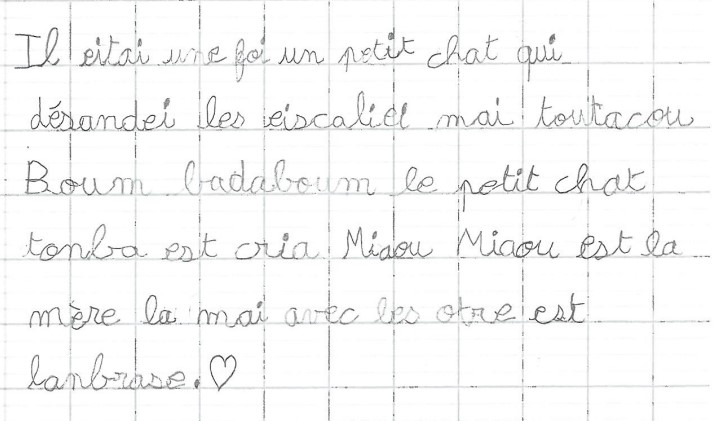 Il eitai une foi un petit chat qui
désandei les eiscaliel mai toutacou
Boum badaboum le petit chat
tonba est cria Miaou Miaou est la
mère la mai avec les otre est
lanbrase.♡